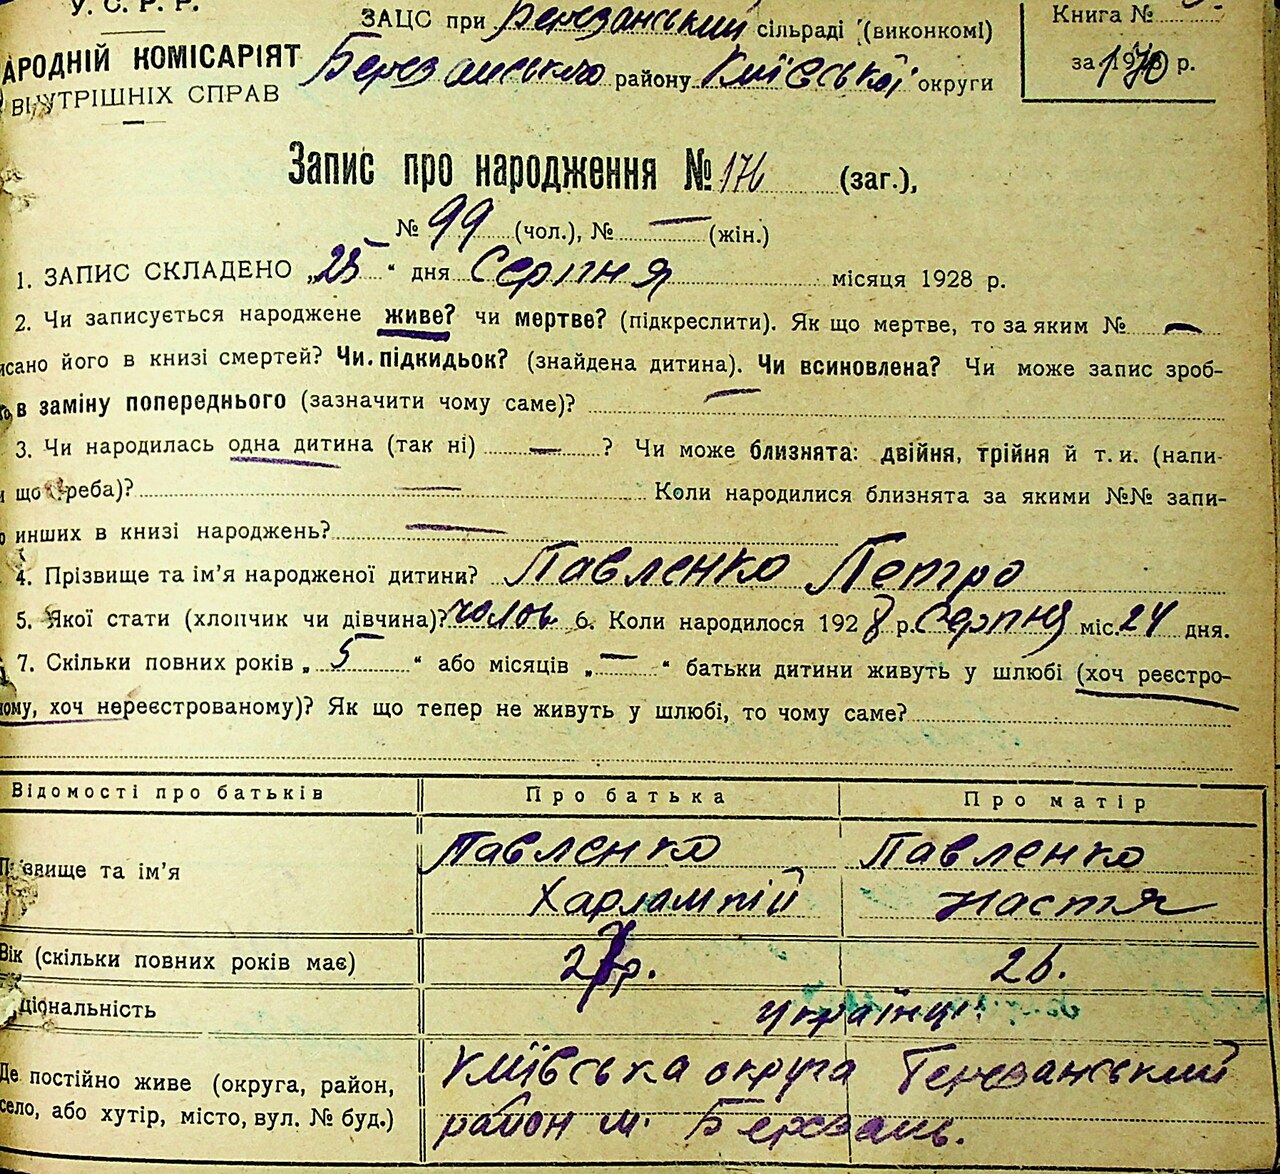 У. С. Р. Р.
ЗАЦС при Березанський сільраді (виконкомі)
Книга №
АРОДНІЙ КОМІСАРІЯТ
Березанського району Київської округи
за 19 р.
ВНУТРІШНІХ СПРАВ
Запис про народження № 176 (заг.),
№ 99 (чол.), № — (жін.)
1. ЗАПИС СКЛАДЕНО „25“ дня Серпня місяця 1928 р.
2. Чи записується народжене живе? чи мертве? (підкреслити). Як що мертве, то за яким № —
исано його в книзі смертей? Чи підкидьок? (знайдена дитина). Чи всиновлена? Чи може запис зроб-
в заміну попереднього (зазначити чому саме)? —
3. Чи народилась одна дитина (так ні) — ? Чи може близнята: двійня, трійня й т. и. (напи-
що треба)? — Коли народилися близнята за якими №№ запи-
о инших в книзі народжень? —
4. Прізвище та ім’я народженої дитини? Павленко Петро
5. Якої стати (хлопчик чи дівчина)? чолов 6. Коли народилося 1928 р. Серпня міс. 24 дня.
7. Скільки повних років „ 5 “ або місяців „ — “ батьки дитини живуть у шлюбі (хоч реєстро-
ному, хоч нереєстрованому)? Як що тепер не живуть у шлюбі, то чому саме?
Відомості про батьків Про батька Про матір
Прізвище та ім’я Павленко Павленко
Харлампій Настя
Вік (скільки повних років має) 27 р. 26.
ціональність Українці
Де постійно живе (округа, район, Київська округа Березанський
село, або хутір, місто, вул. № буд.) район м. Березань.